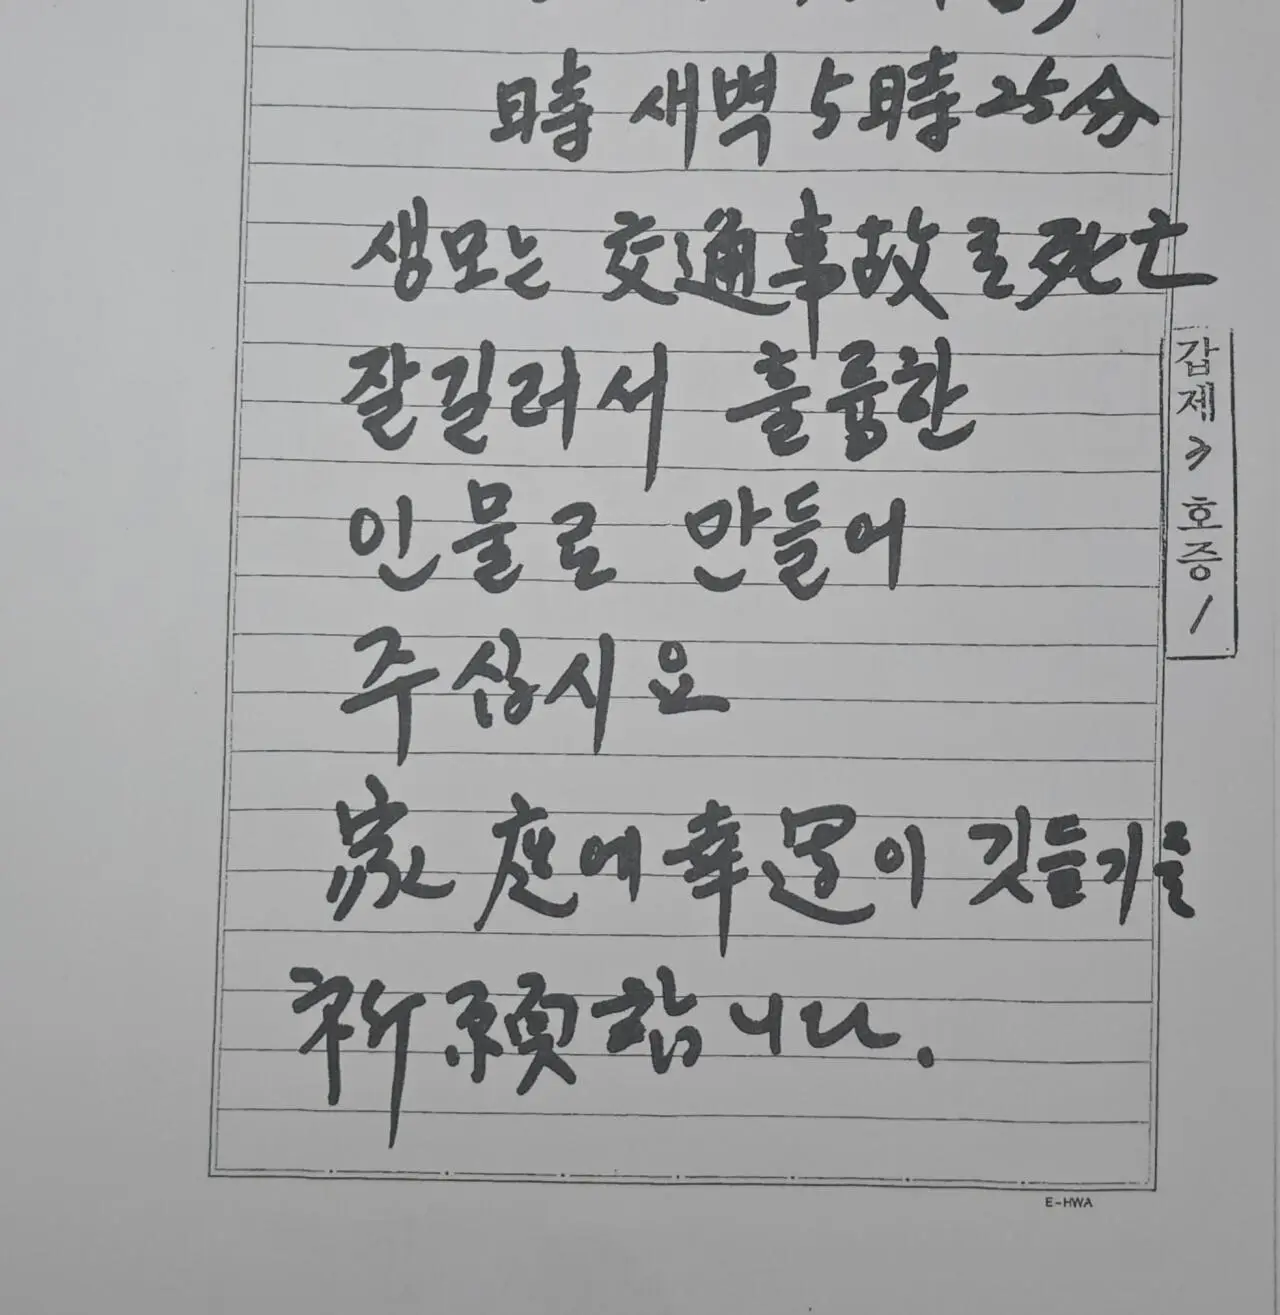 時 새벽 5時 25分
생모는 交通事故로 死亡
잘길러서 훌륭한
인물로 만들어
주십시요
家庭에 幸運이 깃들기를
祈願합니다.
갑제 3 호증 1
E-HWA